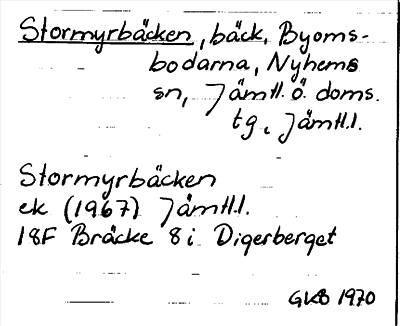 Stormyrbäcken, bäck, Byoms-
bodarna, Nyhems
sn, Jämtl. ö. doms.
tg, Jämtl.l.
Stormyrbäcken
ek (1967) Jämtl.l.
18F Bräcke 8i Digerberget
GKB 1970